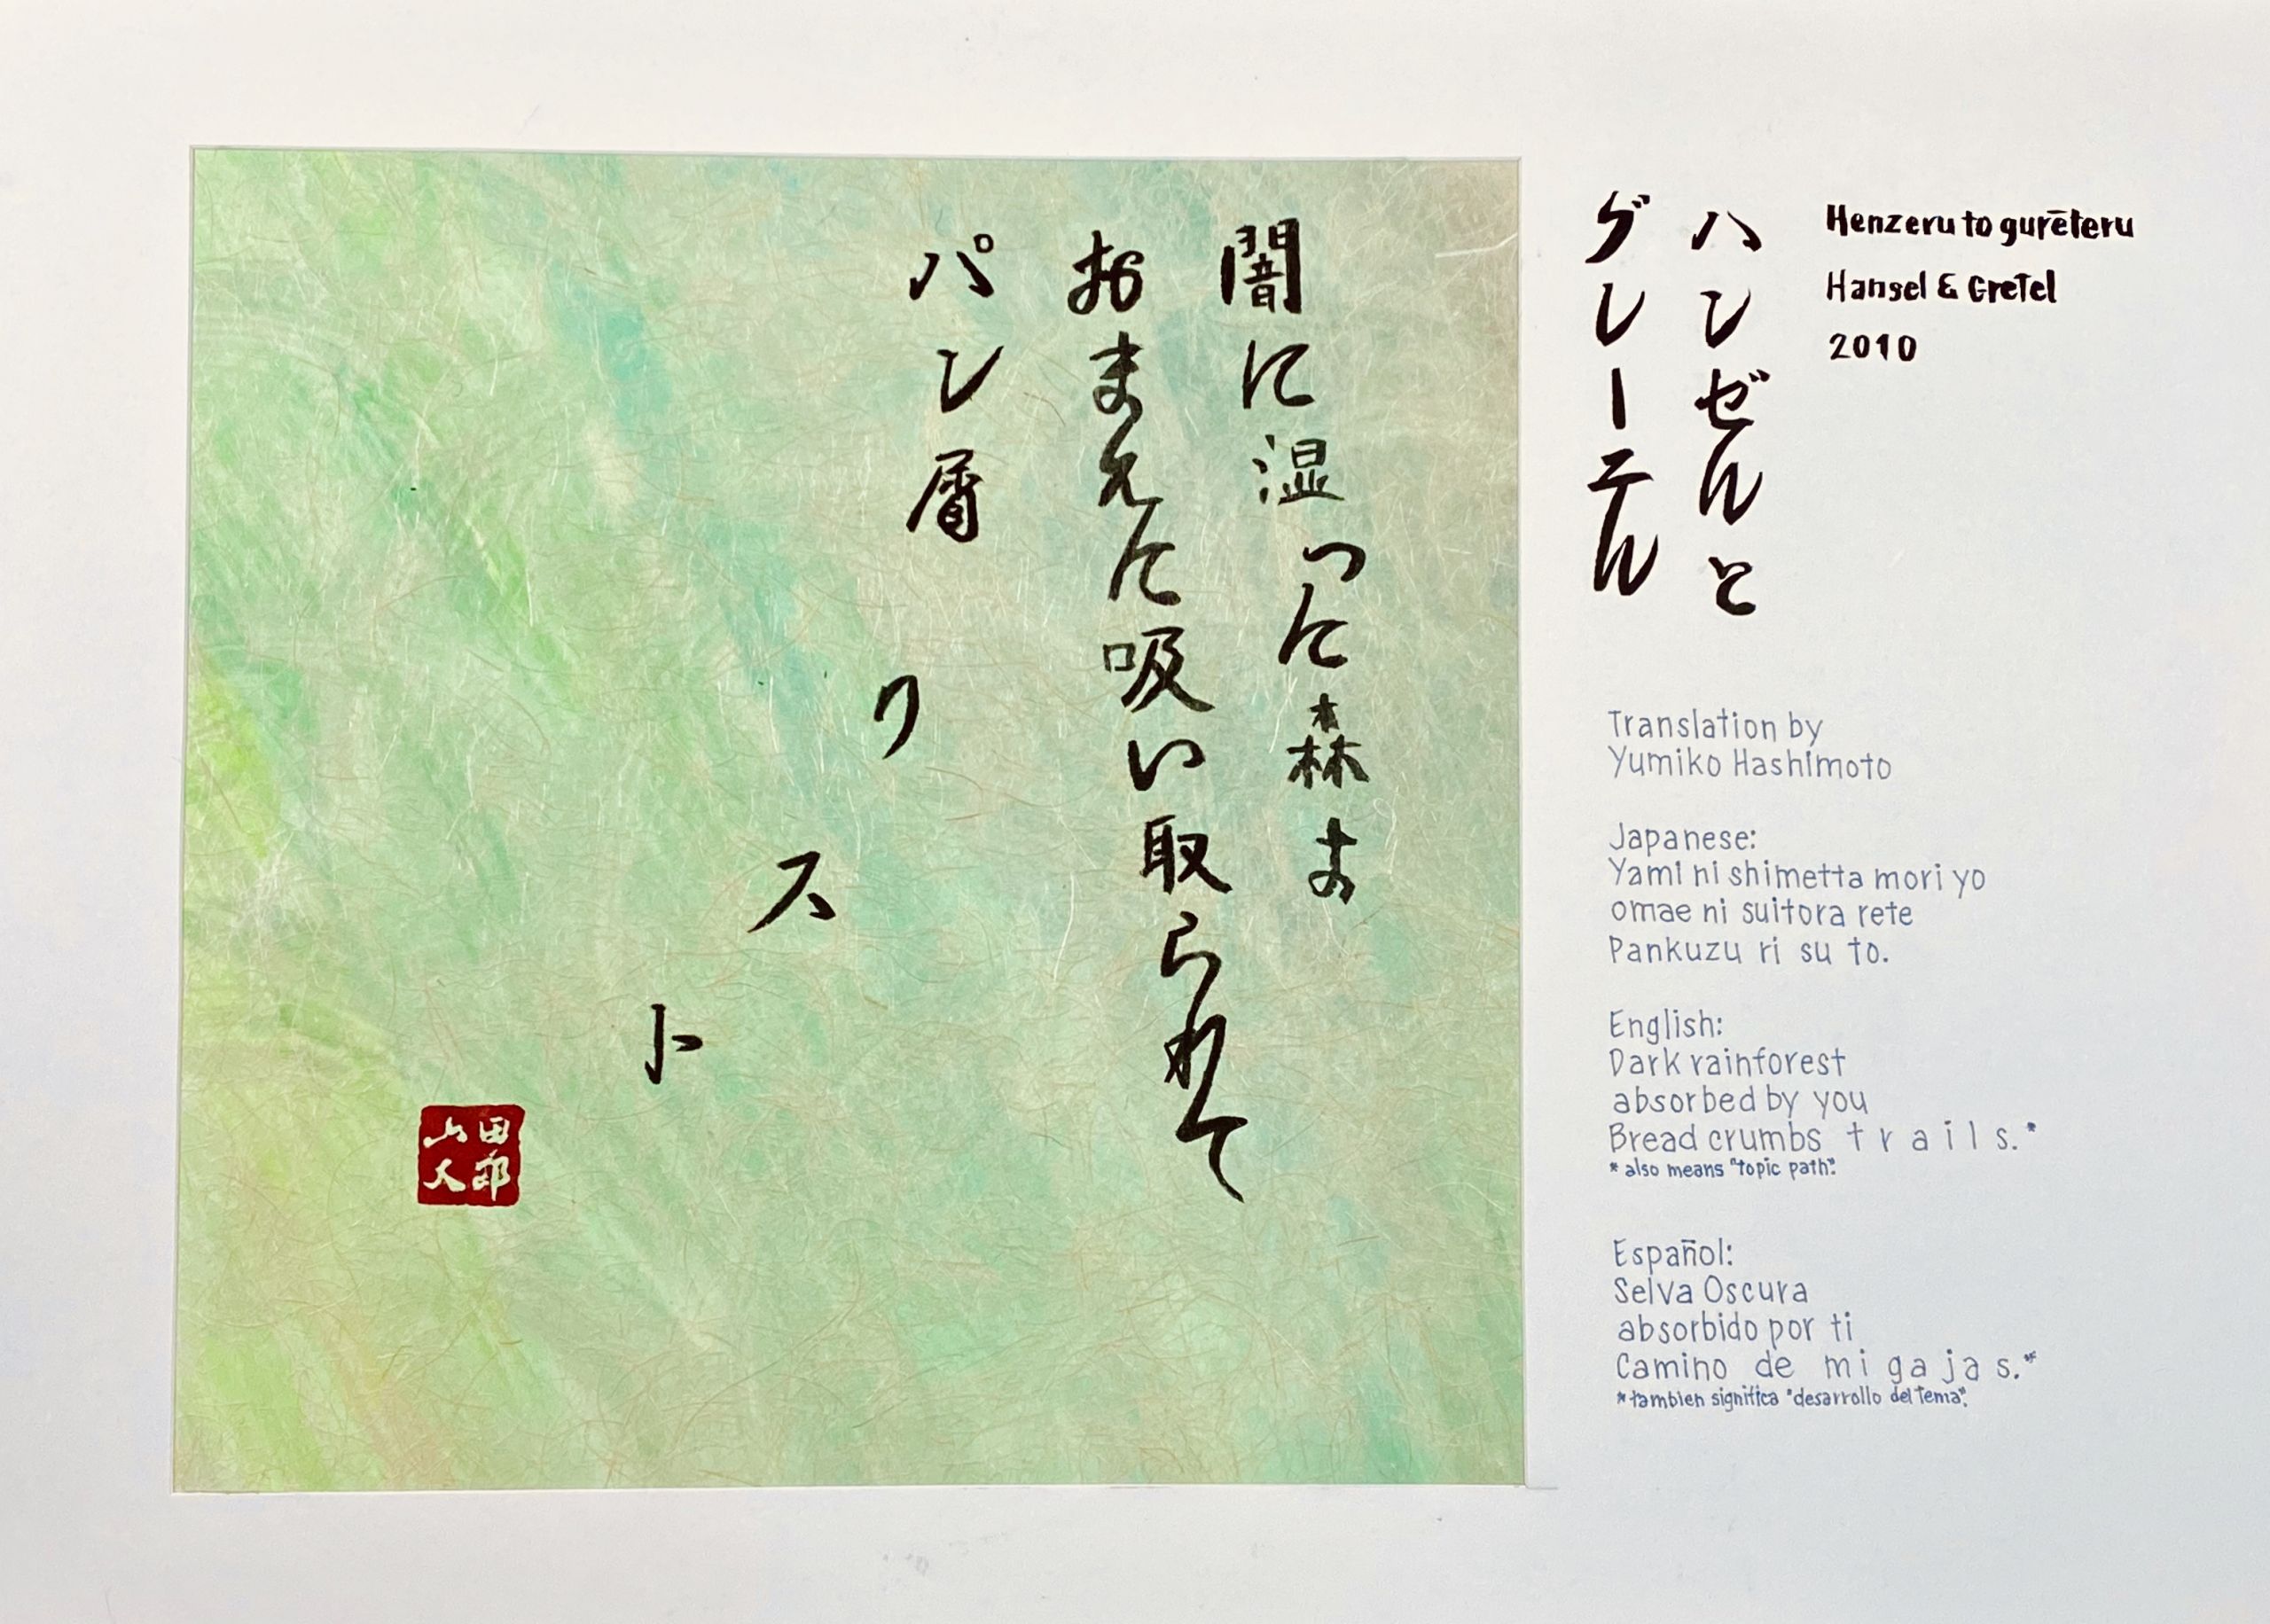 闇に湿った森よ
おまえに吸い取られて
パン屑リスト
山田
人郎
ハンゼルと
グレーテル
Henzeru to gurēteru
Hansel & Gretel
2010
Translation by
Yumiko Hashimoto
Japanese:
Yami ni shimetta mori yo
omae ni suitora rete
Pankuzu ri su to.
English:
Dark rainforest
absorbed by you
Bread crumbs t r a i l s.*
* also means "topic path".
Español:
Selva Oscura
absorbido por ti
Camino de mi ga ja s.*
*tambien significa "desarrollo del tema".